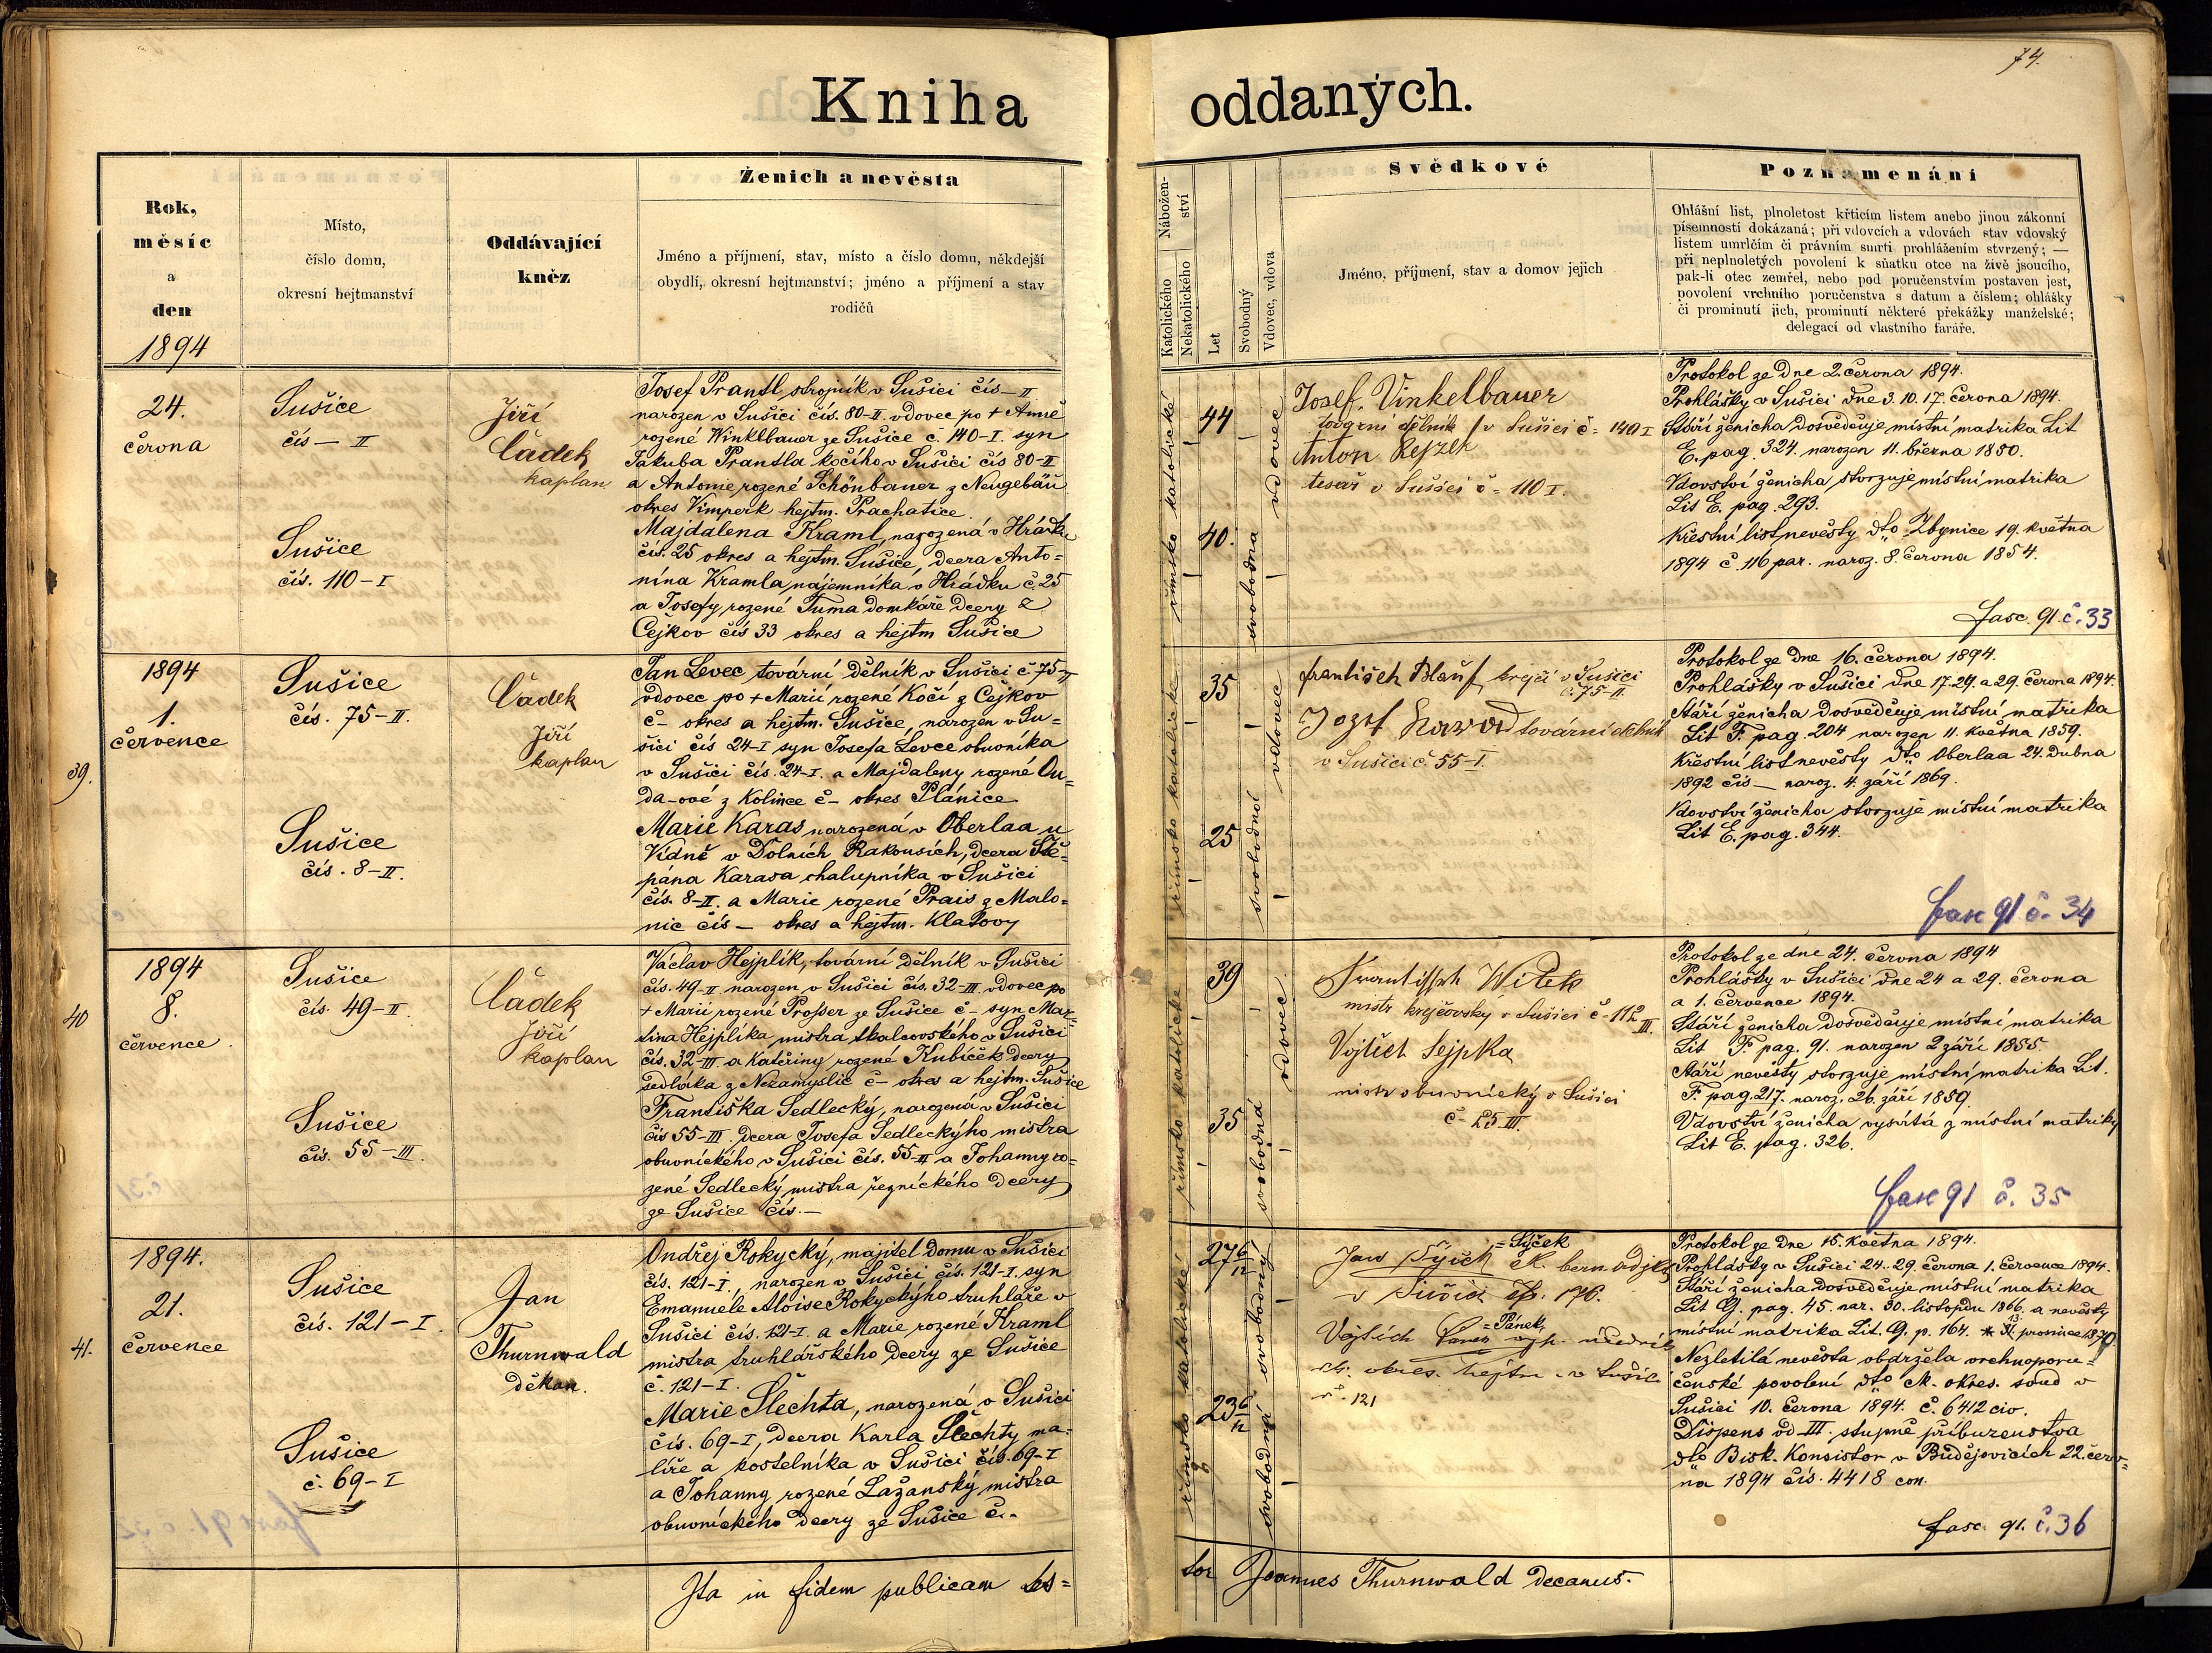 74.
Kniha oddaných.
Rok,
měsíc
a
den
1894
Místo,
číslo domu,
okresní hejtmanství
Oddávající
kněz
Ženich a nevěsta
Jméno a příjmení, stav, místo a číslo domu, někdejší
obydlí, okresní hejtmanství; jméno a příjmení a stav
rodičů
Nábožen-
ství
Katolického
Nekatolického
Let
Svobodný
Vdovec, vdova
Svědkové
Jméno, příjmení, stav a domov jejich
Poznamenání
Ohlášní list, plnoletost křticím listem anebo jinou zákonní
písemností dokázaná; při vdovcích a vdovách stav vdovský
listem umrlčím či právním smrti prohlášením stvrzený; —
při neplnoletých povolení k sňatku otce na živě jsoucího,
pak-li otec zemřel, nebo pod poručenstvím postaven jest,
povolení vrchního poručenstva s datum a číslem; ohlášky
či prominutí jich, prominutí některé překážky manželské;
delegací od vlastního faráře.
24.
června
Sušice
čís — II
Sušice
čís. 110-I
Jiří
Čádek
kaplan
Josef Prantl strojník v Sušici čís — II
narozen v Sušici čís. 80-II. vdovec po + Anně
rozené Winklbauer ze Sušice č. 140-I. syn
Jakuba Prantla kočího v Sušici čís 80-II
a Antonie rozené Schönbauer z Neugebäu
okres Vimperk hejtm. Prachatice
Majdalena Kraml, narozená v Hrádku
čís. 25 okres a hejtm. Sušice, dcera Anto=
nína Kramla nájemníka v Hrádku č. 25
a Josefy rozené Tuma domkáře dcery z
Čejkov čís 33 okres a hejtm Sušice
římsko katolické
44
vdovec
40.
svobodna
Josef. Vinkelbauer
tovarní dělník v Sušici č = 140 I
Anton Rejzek
tesař v Sušici č = 110 I.
Protokol ze dne 2. června 1894.
Prohlášky v Sušici dne 3. 10. 17. června 1894.
Stáří ženicha dosvědčuje místní matrika Lit
E. pag. 324. narozen 11. března 1850.
Vdovství ženicha stvrzuje místní matrika
Lit E. pag. 293.
Křestní list nevěsty dto Zbynice 19. května
1894 č. 116 par. naroz. 8. června 1854.
fasc. 91. č. 33
39.
1894
1.
července
Sušice
čís. 75-II.
Sušice
čís. 8-II.
Čádek
Jiří
kaplan
Jan Levec tovární dělník v Sušici č. 75-II
vdovec po + Marii rozené Kočí z Čejkov
č — okres a hejtm. Sušice, narozen v Su=
šici čís 24-I syn Josefa Levce obuvníka
v Sušici čís. 24-I. a Majdaleny rozené Du=
da-ové z Kolince č — okres Plánice
Marie Karas narozená v Oberlaa u
Vídně v Dolních Rakousích, dcera Ště=
pána Karasa chalupníka v Sušici
čís. 8-II. a Marie rozené Prais z Malo=
nic čís — okres a hejtm. Klatovy
římsko katolické
35
vdovec
25
svobodná
František Blauf krejčí v Sušici
č. 75-II.
tovární dělník
v Sušici č 55-I.
Protokol ze dne 16. června 1894.
Prohlášky v Sušici dne 17. 24. a 29. června 1894.
Stáří ženicha dosvědčuje místní matrika
Lit F. pag. 204 narozen 11. května 1859.
Křestní list nevěsty dto Oberlaa 24. dubna
1892 čís — naroz. 4. září 1869.
Vdovství ženicha stvrzuje místní matrika
Lit E. pag. 344.
fasc 91 č. 34
40
1894
8.
července
Sušice
čís. 49-II.
Sušice
čís. 55-III.
Čádek
Jiří
kaplan
Václav Hejplík, tovární dělník v Sušici
čís. 49-II. narozen v Sušici čís. 32-III. vdovec po
+ Marii rozené Prosser ze Sušice č — syn Mar=
tina Hejplíka mistra tkalcovského v Sušici
čís. 32-III a Kateřiny rozené Kubíček dcery
sedláka z Nezamyslic č — okres a hejtm. Sušice
Františka Sedlecký, narozená v Sušici
čís 55-III. dcera Josefa Sedleckýho mistra
obuvnického v Sušici čís. 55-III a Johanny ro=
zené Sedlecký mistra řeznického dcery
ze Sušice čís. —
římsko katolické
39
vdovec
35
svobodná
Frantissek Witek
mistr krejčovský v Sušici č - 112 III.
Vojtěch Sejpka
mistr obuvnický v Sušici
č - 25 III.
Protokol ze dne 24. června 1894
Prohlášky v Sušici dne 24 a 29. června
a 1. července 1894.
Stáří ženicha dosvědčuje místní matrika
Lit F. pag. 91. narozen 2 září 1855.
Stáří nevěsty stvrzuje místní matrika Lit.
F pag. 217. naroz. 26. září 1859.
Vdovství ženicha vysvítá z místní matriky
Lit E. pag. 326.
fasc 91 č. 35
41.
1894.
21.
července
Sušice
čís. 121-I
Sušice
č. 69-I
Jan
Thurnwald
děkan.
Ondřej Rokycký, majitel domu v Sušici
čís. 121-I., narozen v Sušici čís. 121-I. syn
Emanuele Aloise Rokyckýho truhláře v
Sušici čís. 121-I. a Marie rozené Kraml
mistra truhlářského dcery ze Sušice
č. 121-I.
Marie Šlechta, narozená v Sušici
čís. 69-I, dcera Karla Šlechty ma=
líře a kostelníka v Sušici čís. 69-I
a Johanny rozené Lažanský mistra
obuvnického dcery ze Sušice č. -
římsko katolické
27 6/12
svobodný
23 6/12
svobodná
=Sýček
Jan Sýček k. bern. adj.
v Sušici čp. 176.
=Pánek
Vojtěch
ck. okres. hejtm. v Sušici
č. 121
Protokol ze dne 15. května 1894.
Prohlášky v Sušici 24. 29. června 1. července 1894.
Stáří ženicha dosvědčuje místní matrika
Lit G. pag. 45. nar. 30. listopdu 1866. a nevěsty
místní matrika Lit. G. p. 164. * 13. prosince 1870.
Nezletilá nevěsta obdržela vrchnoporu=
čenské povolení dto ck. okres. soud v
Sušici 10. června 1894. č. 6412 civ.
Dispens od III. stupně příbuzenstva
dto Bisk. Konsistor v Budějovicích 22. červ=
na 1894 čís. 4418 con.
fasc. 91. č. 36
Ita in fidem publicam tes=
tor Joannes Thurnwald decanus.